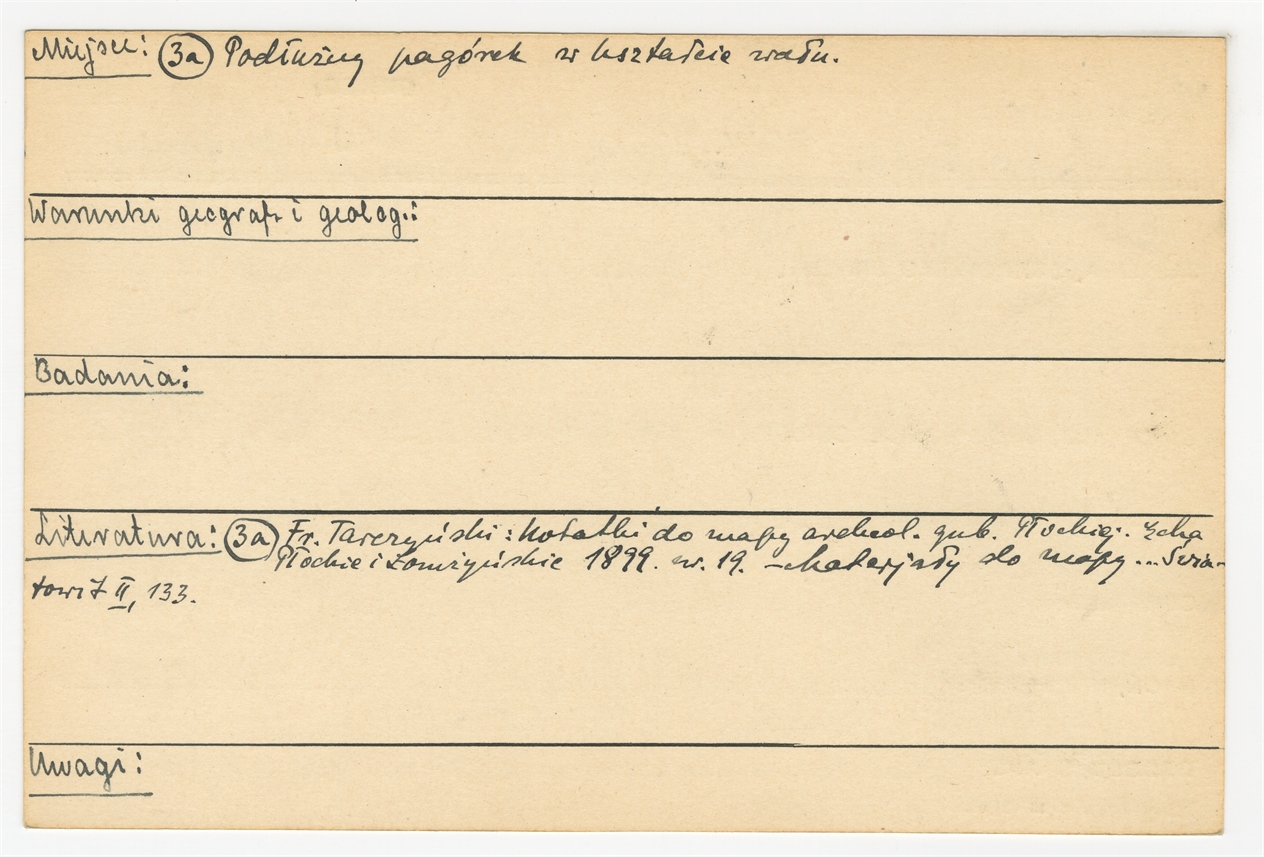 Miejsce: 3a Podłużny pagórek w kształcie wału.
Warunki geograf. i geolog.:
Badania:
Literatura: 3a Fr. Tarczyński: Notatki do mapy archeol. gub. Płockiej. Echa
Płockie i Łomżyńskie 1899. nr. 19. – Materjały do mapy... Świa-
towit II, 133.
Uwagi: